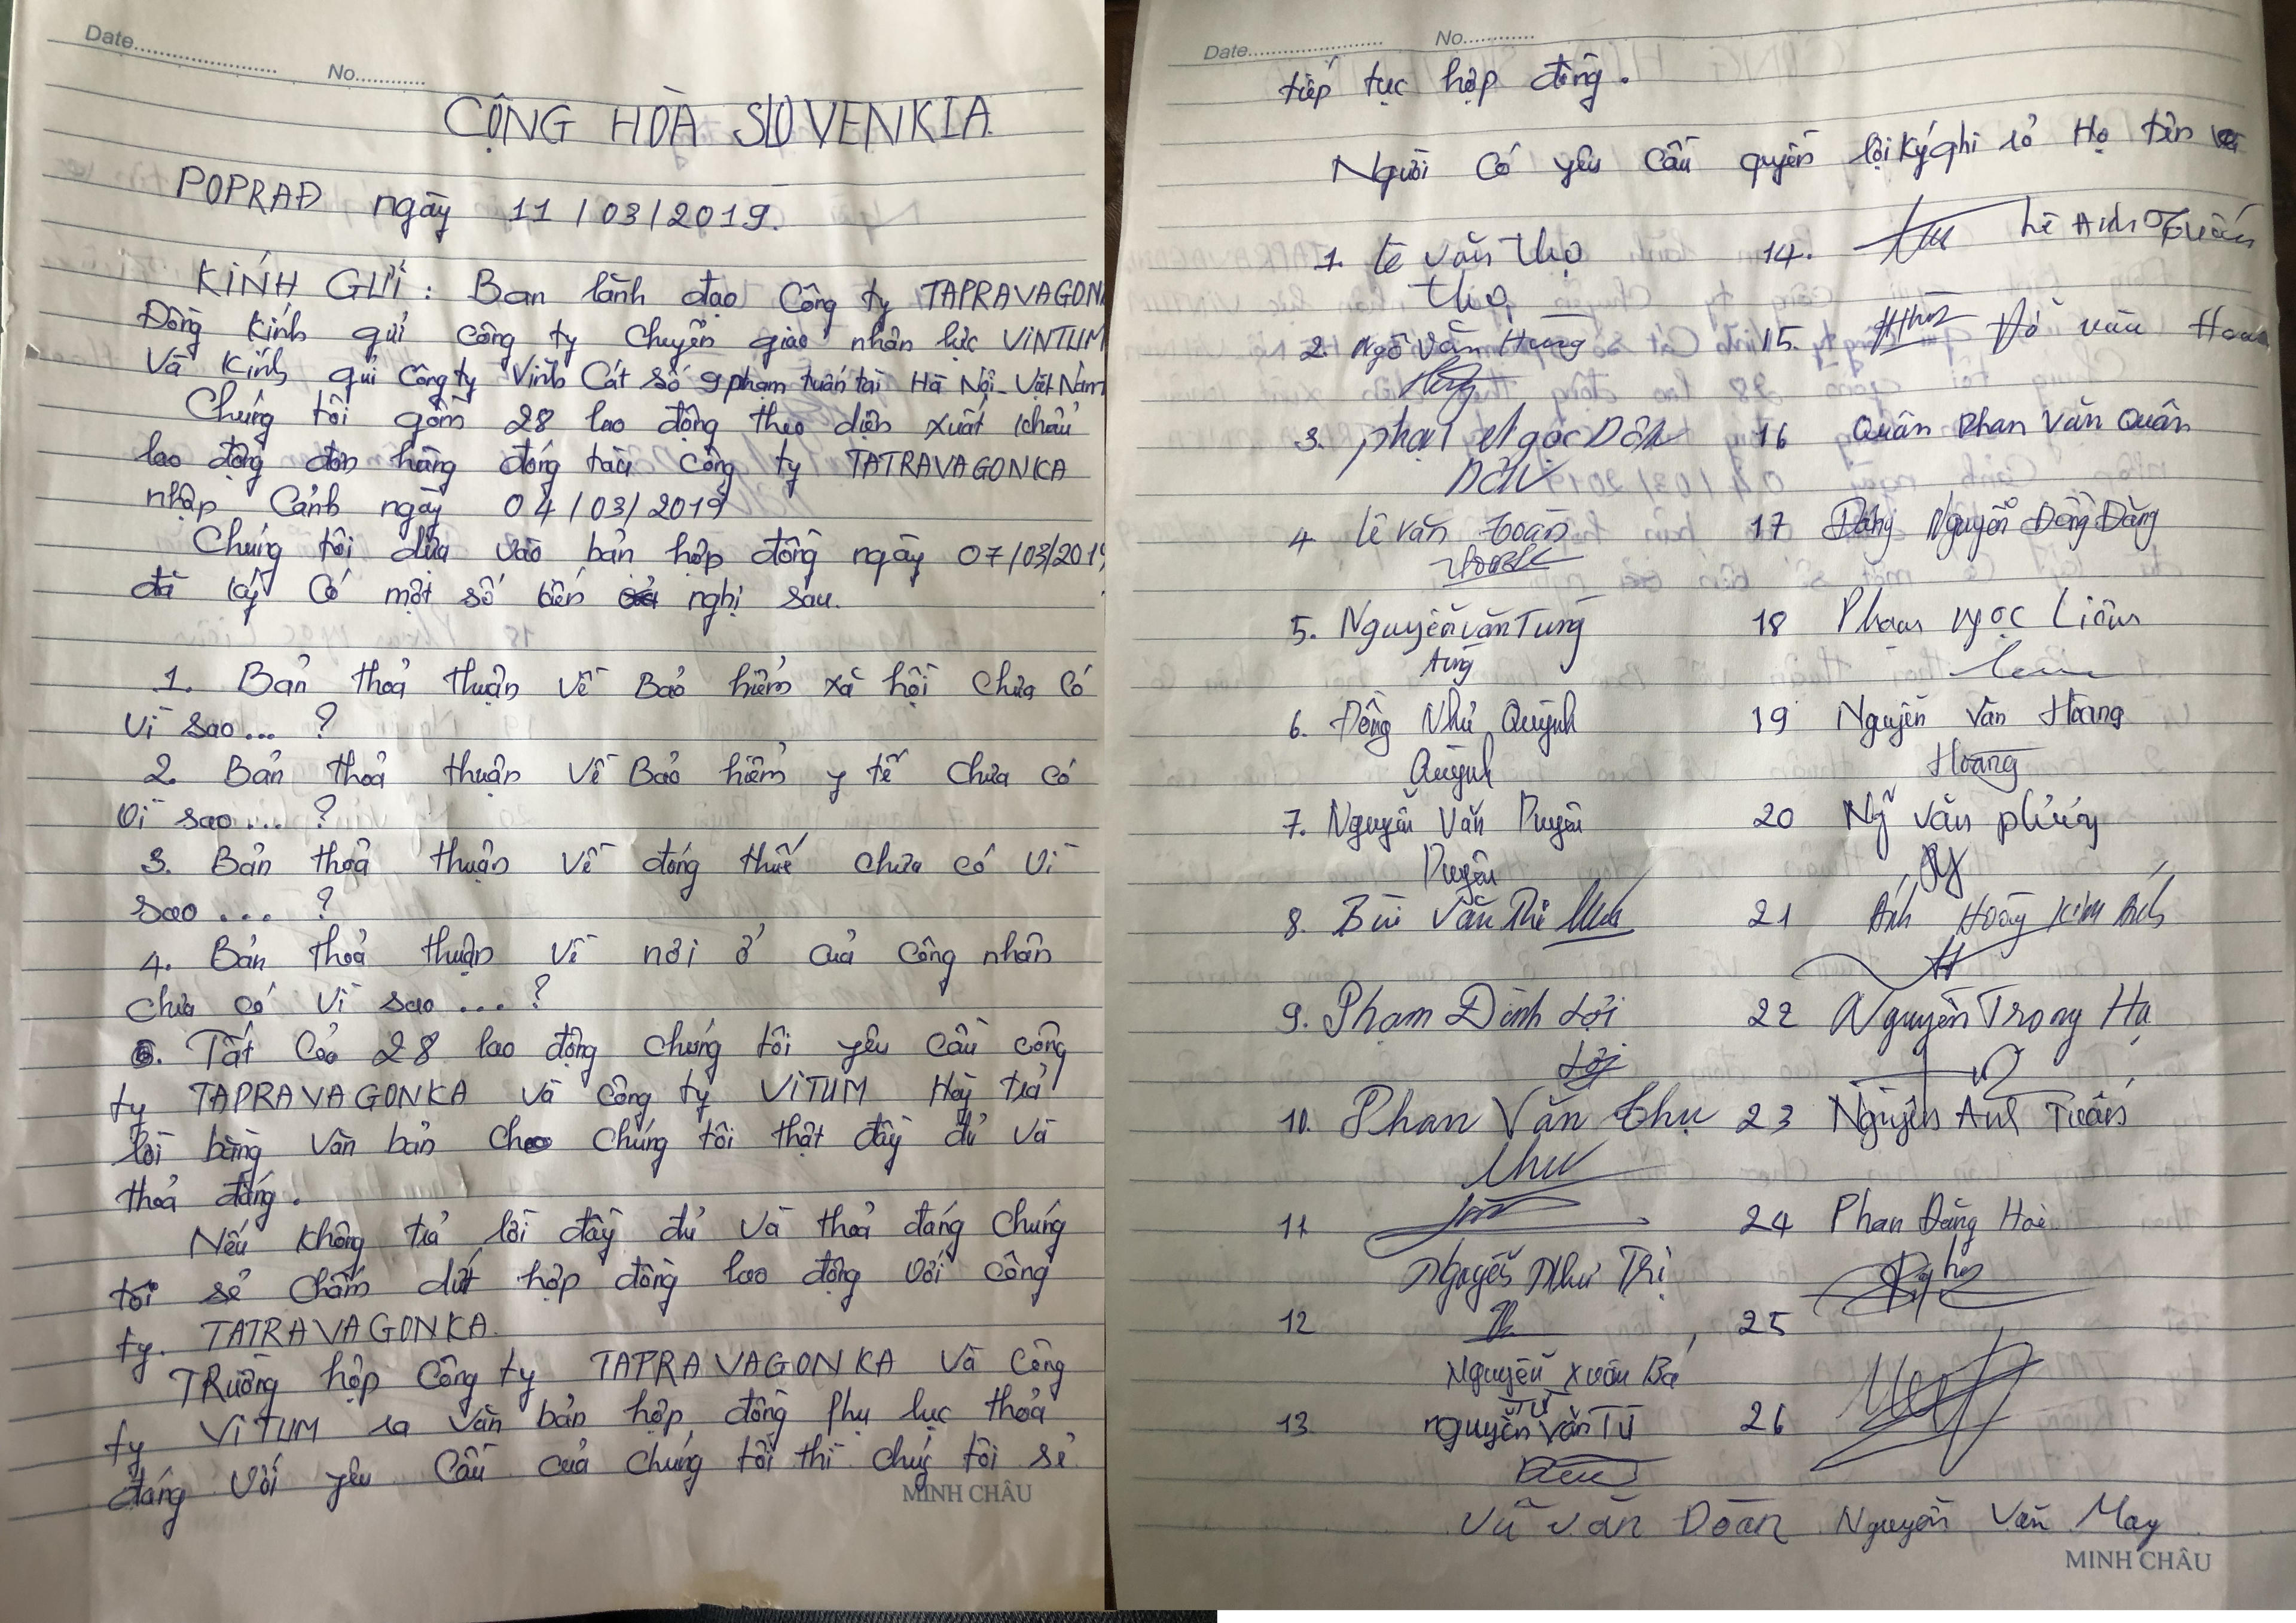 Date
No
CỘNG HÒA SLOVENKIA
POPRAĐ ngày 11/03/2019.
KÍNH GỬI: Ban lãnh đạo Công ty TAPRAVAGON
Đồng kính gửi công ty chuyển giao nhân lực VINTUM
Và Kính gửi Công ty Vinh Cát số 9 phạm tuấn tài Hà Nội - Việt Nam
Chúng tôi gồm 28 lao động theo diện xuất khẩu
lao động đơn hàng đóng tàu công ty TATRAVAGONKA
nhập Cảnh ngày 04/03/2019
Chúng tôi dựa vào bản hợp đồng ngày 07/03/2019
đã ký Có một số kiến nghị sau.
1. Bản thoả thuận về Bảo hiểm xã hội chưa có
vì sao... ?
2. Bản thoả thuận về Bảo hiểm y tế chưa có
vì sao... ?
3. Bản thoả thuận về đóng thuế chưa có vì
sao... ?
4. Bản thoả thuận về nơi ở của công nhân
chưa có vì sao... ?
Tất Cả 28 lao động chúng tôi yêu cầu công
ty TAPRAVAGONKA và công ty VITUM Hãy trả
lời bằng văn bản cho chúng tôi thật đầy đủ và
thoả đáng.
Nếu không trả lời đầy đủ và thoả đáng chúng
tôi sẻ chấm dứt hợp đồng lao động với công
ty. TATRAVAGONKA.
TRường hợp Công ty TAPRAVAGONKA và công
ty VITUM ra văn bản hợp đồng phụ lục thoả
đáng với yêu cầu của chúng tôi thì chúng tôi sẻ
MINH CHÂU
Date
No
tiếp tục hợp đồng.
Người có yêu cầu quyền lợi ký ghi rỏ Họ tên
1. Lê Văn Thọ
Thọ
14. Lê Anh Tuấn
2. Ngô Văn Hưng
15. Đỗ văn
3. phạm Ngọc Dân
16 Quân Phan Văn Quân
4 Lê văn Hoàn
17 Đăng Nguyễn Đăng
5. Nguyễn Văn Tùng
tùng
18 Phạm Ngọc Liêm
6. Đồng Như Quỳnh
Quỳnh
19 Nguyễn Văn Hoàng
Hoàng
7. Nguyễn Văn Duyên
Duyên
20 văn
8. Bùi Văn
21 Ánh Hoàng Kim Ánh
9. Phạm Đình Lợi
Lợi
22 Nguyễn Trọng Hạ
10. Phan Văn Thụ
23 Nguyễn Anh Tuấn
11
Nguyễn Như Trị
24 Phan Đăng Hoà
12
Nguyễn Xuân Bá
25
13
nguyễn Văn Tú
26
Vũ văn Đoàn
Nguyễn Văn May
MINH CHÂU